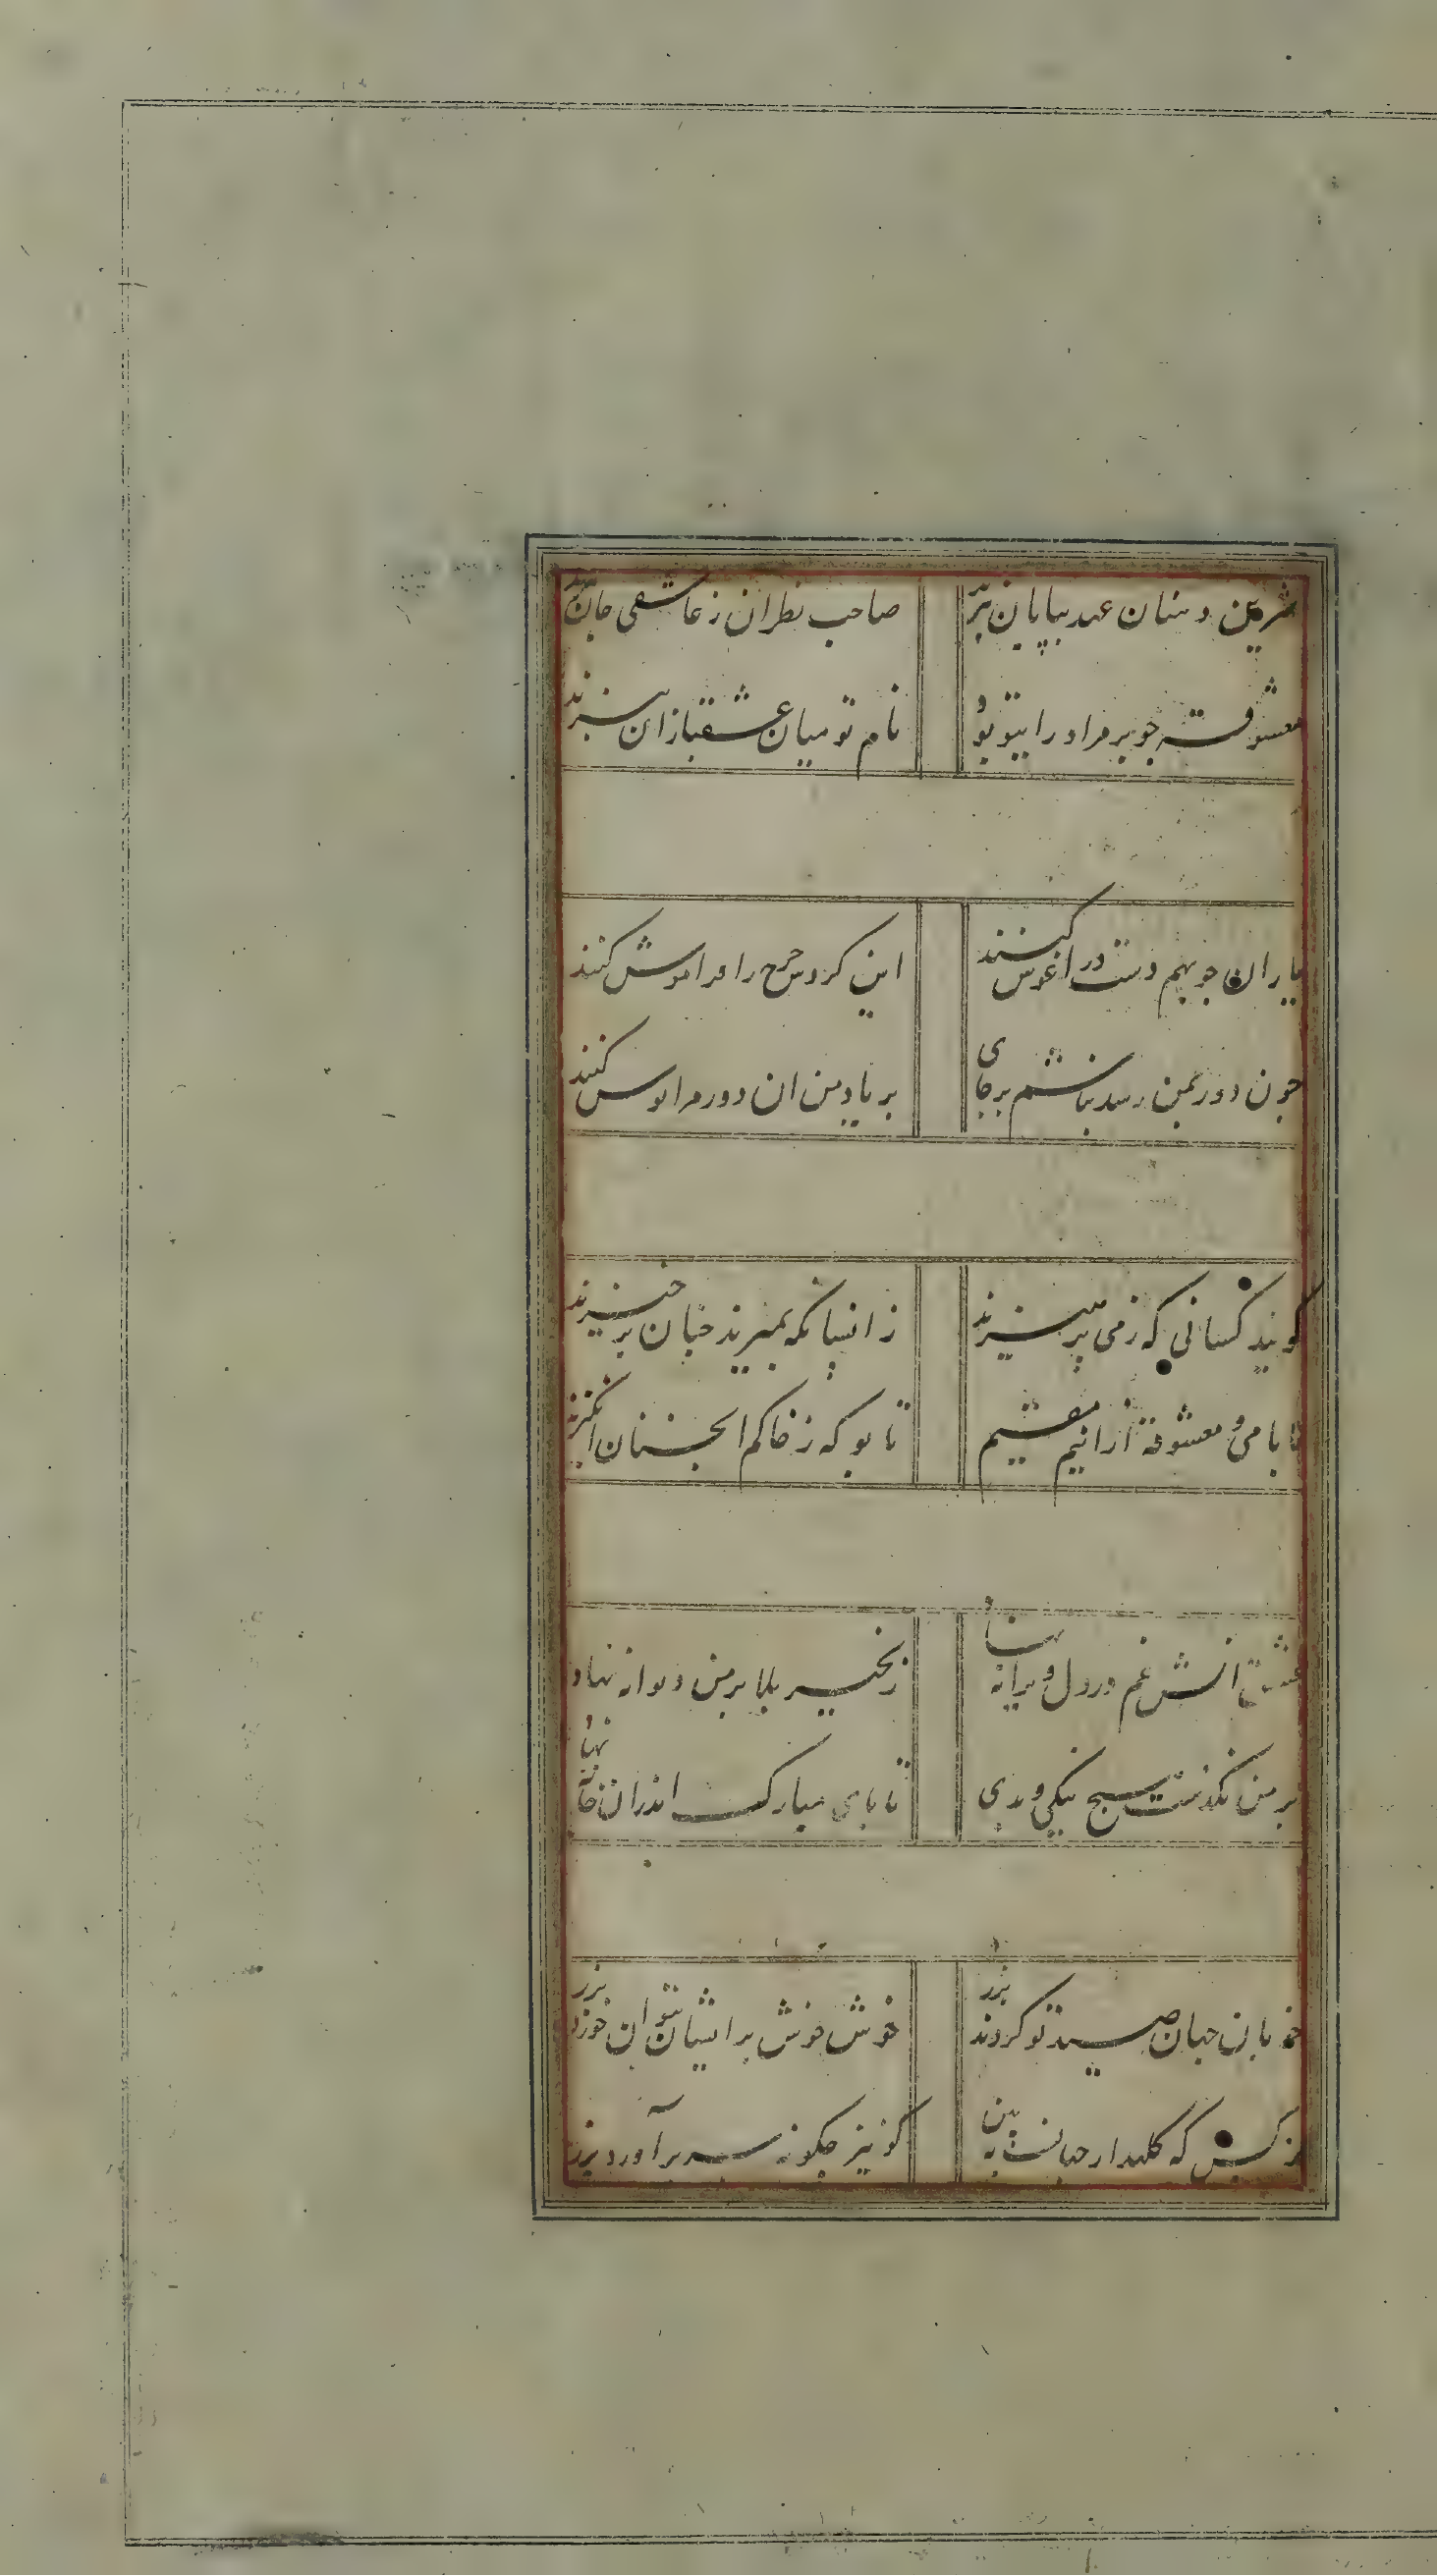 شیرین دهنان عهد بپایان نبرند
صاحب نظران ز عاشقی جان نبرند
معشوقه چو بر مراد رای تو بود
نام تو میان عشقبازان نبرند
یاران چو بهم دست در اغوش کنند
این کردش چرخ را فراموش کنند
چون دور بمن رسد نباشم بر جای
بر یاد من ان دور مرا نوش کنند
کویند کسانی که ز می پرهیزند
زانسانکه بمیرند چنان برخیزند
ما با می و معشوقه ازانیم مقیم
تا بو که ز خاکم انچنان انکیزند
عشق اتش غم در دل ویرانه نهاد
زنجیر بلا بر من دیوانه نهاد
بر من نکذشت هیچ نیکی و بدی
تا پای مبارک اندران خانه نهاد
خوبان جهان صید تو کردند بزر
خوش خوش بر ایشان بتوان خورد بزر
نرکس که کلهدار جهانست ببین
کو نیز چکونه سر بر آورد بزر